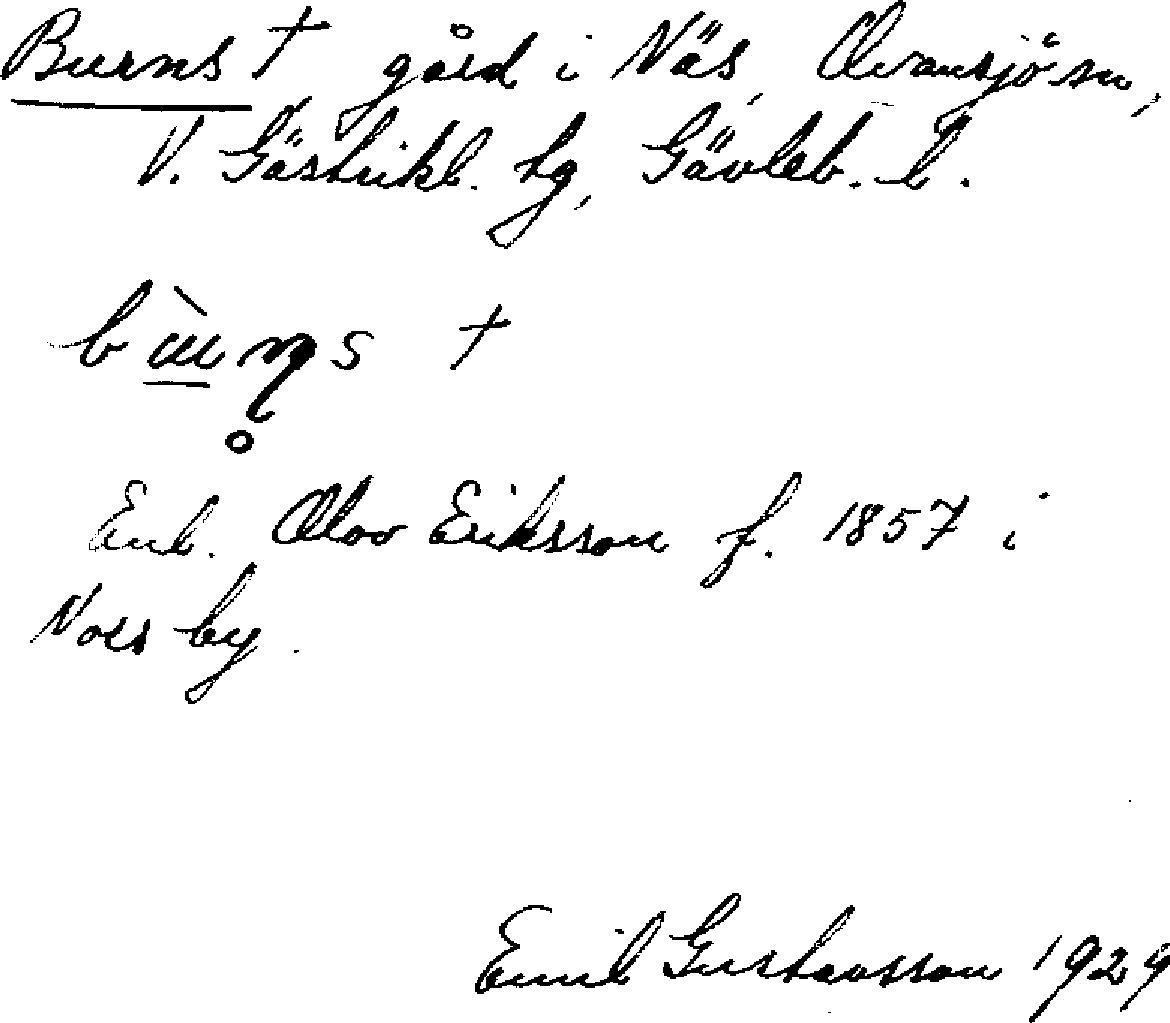 Burns † gård i Näs, Ovansjö sn,
V. Gästrikl. tg, Gävleb. l.
†
Enl. Olov Eriksson f. 1857 i
Nors by.
Emil Gustavsson 1929